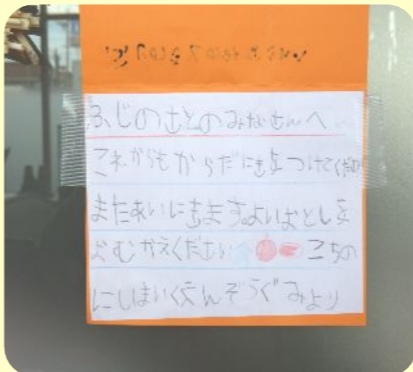 ふじのさとのみなさんへ
これからもからだにきをつけてくだ
またあいにきます。よいおとしを
おむかえください こちの
にしほいくえんぞうぐみより